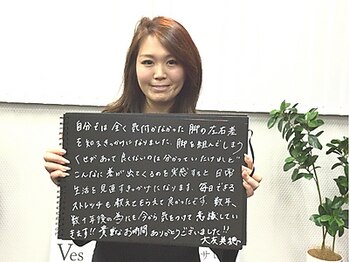 自分では全く気付かなかった脚の左右差
を知るきっかけになりました。脚を組んでしまう
くせがあって良くないのは分かっていたけれど
こんなに差が出てくるのを実感すると日常
生活を見直すきっかけになります。毎日できる
ストレッチも教えてもらえて良かったです。数年、
数十年後の為にも今から気をつけて意識してい
きます!! 貴重なお時間ありがとうございました!!
Ves
サ